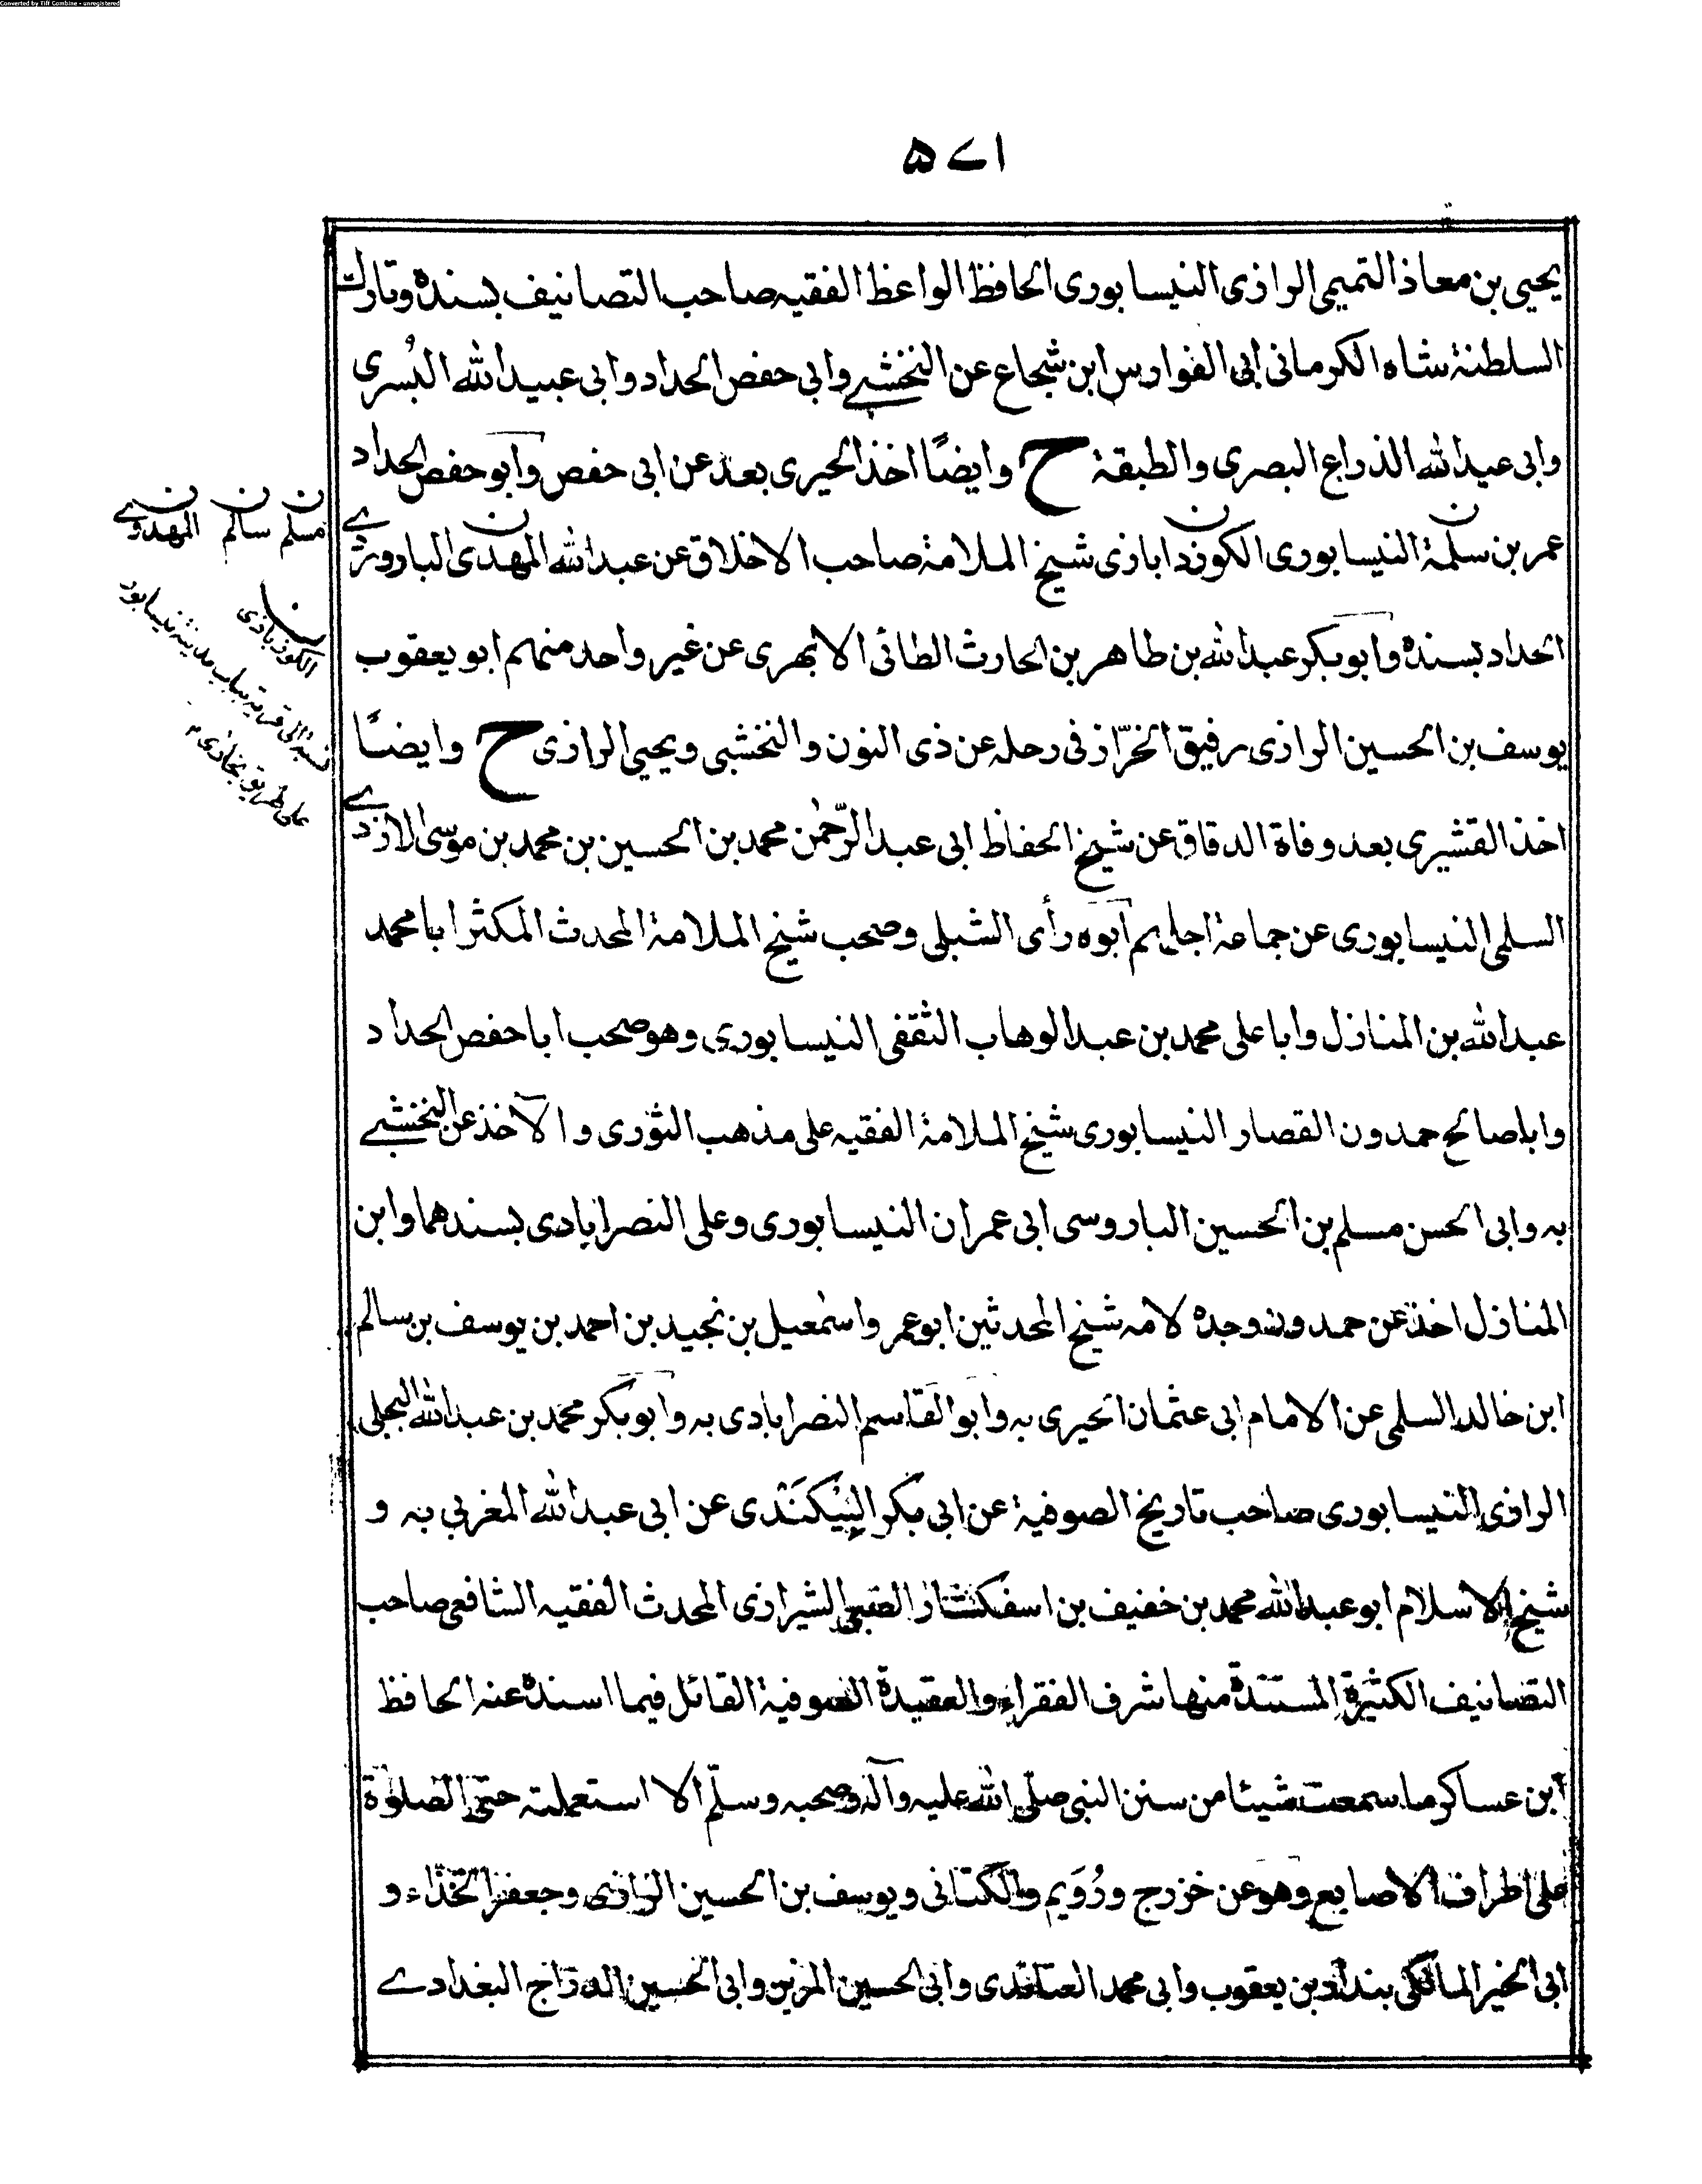 Converted by Tiff Combine - unregistered
۵۷۱
يحيى بن معاذ التميمى الرازى النيسابورى الحافظ الواعظ الفقيه صاحب التصانيف بسنده وتارك
السلطنة شاه الكرمانى ابى الفوارس ابن شجاع عن النخشبے وابى حفص الحداد وابى عبيد الله البُسرى
وابى عبد الله الذراع البصرى والطبقة ح وايضًا اخذ الحيرى بعد عن ابى حفص وابو حفص الحداد
عمر بن سلمة النيسابورى الكوزدابازى شيخ الملامة صاحب الاخلاق عن عبد الله المهدى الباروزے
الحداد بسنده وابو بكر عبد الله بن طاهر بن الحارث الطائى الابهرى عن غير واحد منهم ابو يعقوب
يوسف بن الحسين الرازى رفيق الخرّاز فى رحله عن ذى النون والنخشبى ويحيى الرازى ح وايضًا
اخذ القشيرى بعد وفاة الدقاق عن شيخ الحفاظ ابى عبد الرّحمٰن محمد بن الحسين بن محمد بن موسىٰ الازدے
السلمى النيسابورى عن جماعة اجلهم ابوه رأى الشبلى وصحب شيخ الملامة المحدث المكثر ابا محمد
عبد الله بن المنازل وابا على محمد بن عبد الوهاب الثقفى النيسابورى وهو صحب ابا حفص الحداد
وابا صالح حمدون القصار النيسابورى شيخ الملامة الفقيه على مذهب الثورى والآخذ عن النخشبے
به وابى الحسن مسلم بن الحسين الباروسى ابى عمران النيسابورى وعلى النصرابادى بسندهما وابن
المنازل اخذ عن حمدون وجده لامه شيخ المحدثين ابو عمرو اسمٰعيل بن نجيد بن احمد بن يوسف بن سالم
ابن خالد السلمى عن الامام ابى عثمان الحيرى به وابو القاسم النصرابادى به وابو بكر محمد بن عبد الله البجلى
الرازى النيسابورى صاحب تاريخ الصوفية عن ابى بكر البِيْكَنْدى عن ابى عبد الله المغربي به و
شيخ الاسلام ابو عبد الله محمد بن خفيف بن اسفكشار الضبى الشيرازى المحدث الفقيه الشافعى صاحب
التصانيف الكثيرة المستندة منها شرف الفقراء والعقيدة الصوفية القائل فيما اسنده عنه الحافظ
ابن عساكر ما سمعت شيئا من سنن النبى صلّى الله عليه وآله وصحبه وسلّم الا استعملته حتى الصلوٰة
على اطراف الاصابع وهو عن خزرج ورُوَيم والكتانى ويوسف بن الحسين الرازى وجعفر الحذّاء و
ابى الخير المالكى بندار بن يعقوب وابى محمد العتائدى وابى الحسين المزين وابى الحسين الدراج البغدادے
ن ن ن
مسلم سالم المهدوے
ن
الكوزباذى
نسبة الى قرية بباب مدينة نيسابور
على طريق بخارى